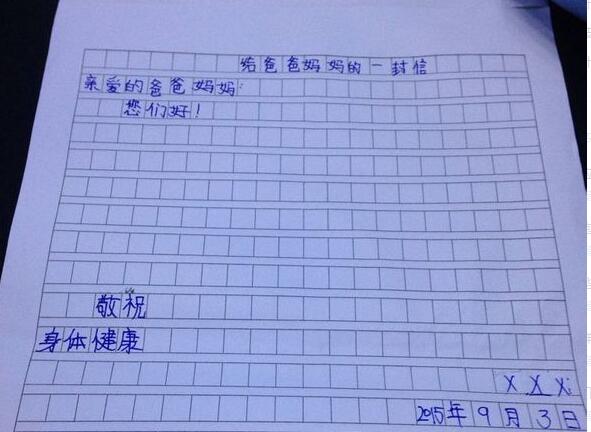 给爸爸妈妈的一封信
亲爱的爸爸妈妈:
您们好!
敬祝
身体健康
XXX
2015年9月3日